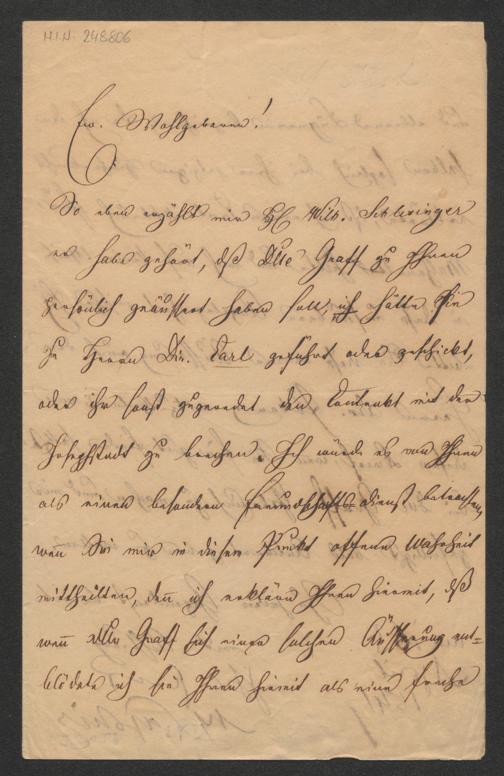 H.I.N. 248806
Ew. Wohlgeboren!
So eben erzählt mir H Wilh. Schlesinger
er habe gehört, dß Dlle Graff zu Ihnen
persönlich geäussert haben soll, ich hätte sie
zu Herrn Dir. Carl geführt oder geschickt,
oder ihr sonst zugeredet den Contrakt mit der
Josephstadt zu brechen. Ich würde es von Ihnen
als einen besondern Freundschaftsdienst betrachten,
wen Sie mir in diesem Punkt offene Wahrheit
mittheilten, den ich erkläre Ihnen hiermit, dß
wen Dlle Graff sich einer solchen Äusserung ent=
blödete ich sie Ihnen hiemit als eine freche